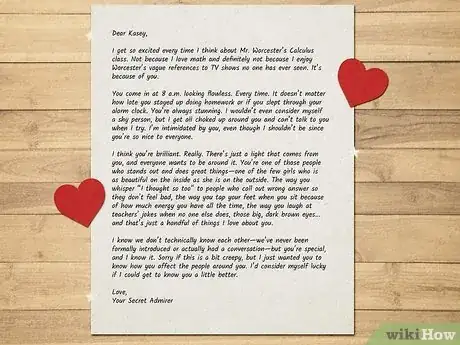 Dear Kasey,
I get so excited every time I think about Mr. Worcester's Calculus
class. Not because I love math and definitely not because I enjoy
Worcester's vague references to TV shows no one has ever seen. It's
because of you.
You come in at 8 a.m. looking flawless. Every time. It doesn't matter
how late you stayed up doing homework or if you slept through your
alarm clock. You're always stunning. I wouldn't even consider myself
a shy person, but I get all choked up around you and can't talk to you
when I try. I'm intimidated by you, even though I shouldn't be since
you're so nice to everyone.
I think you're brilliant. Really. There's just a light that comes from
you, and everyone wants to be around it. You're one of those people
who stands out and does great things—one of the few girls who is
as beautiful on the inside as she is on the outside. The way you
whisper "I thought so too" to people who call out wrong answer so
they don't feel bad, the way you tap your feet when you sit because
of how much energy you have all the time, the way you laugh at
teachers' jokes when no one else does, those big, dark brown eyes...
and that's just a handful of things I love about you.
I know we don't technically know each other—we've never been
formally introduced or actually had a conversation—but you're special,
and I know it. Sorry if this is a bit creepy, but I just wanted you to
know how you affect the people around you. I'd consider myself lucky
if I could get to know you a little better.
Love,
Your Secret Admirer
wikiHow